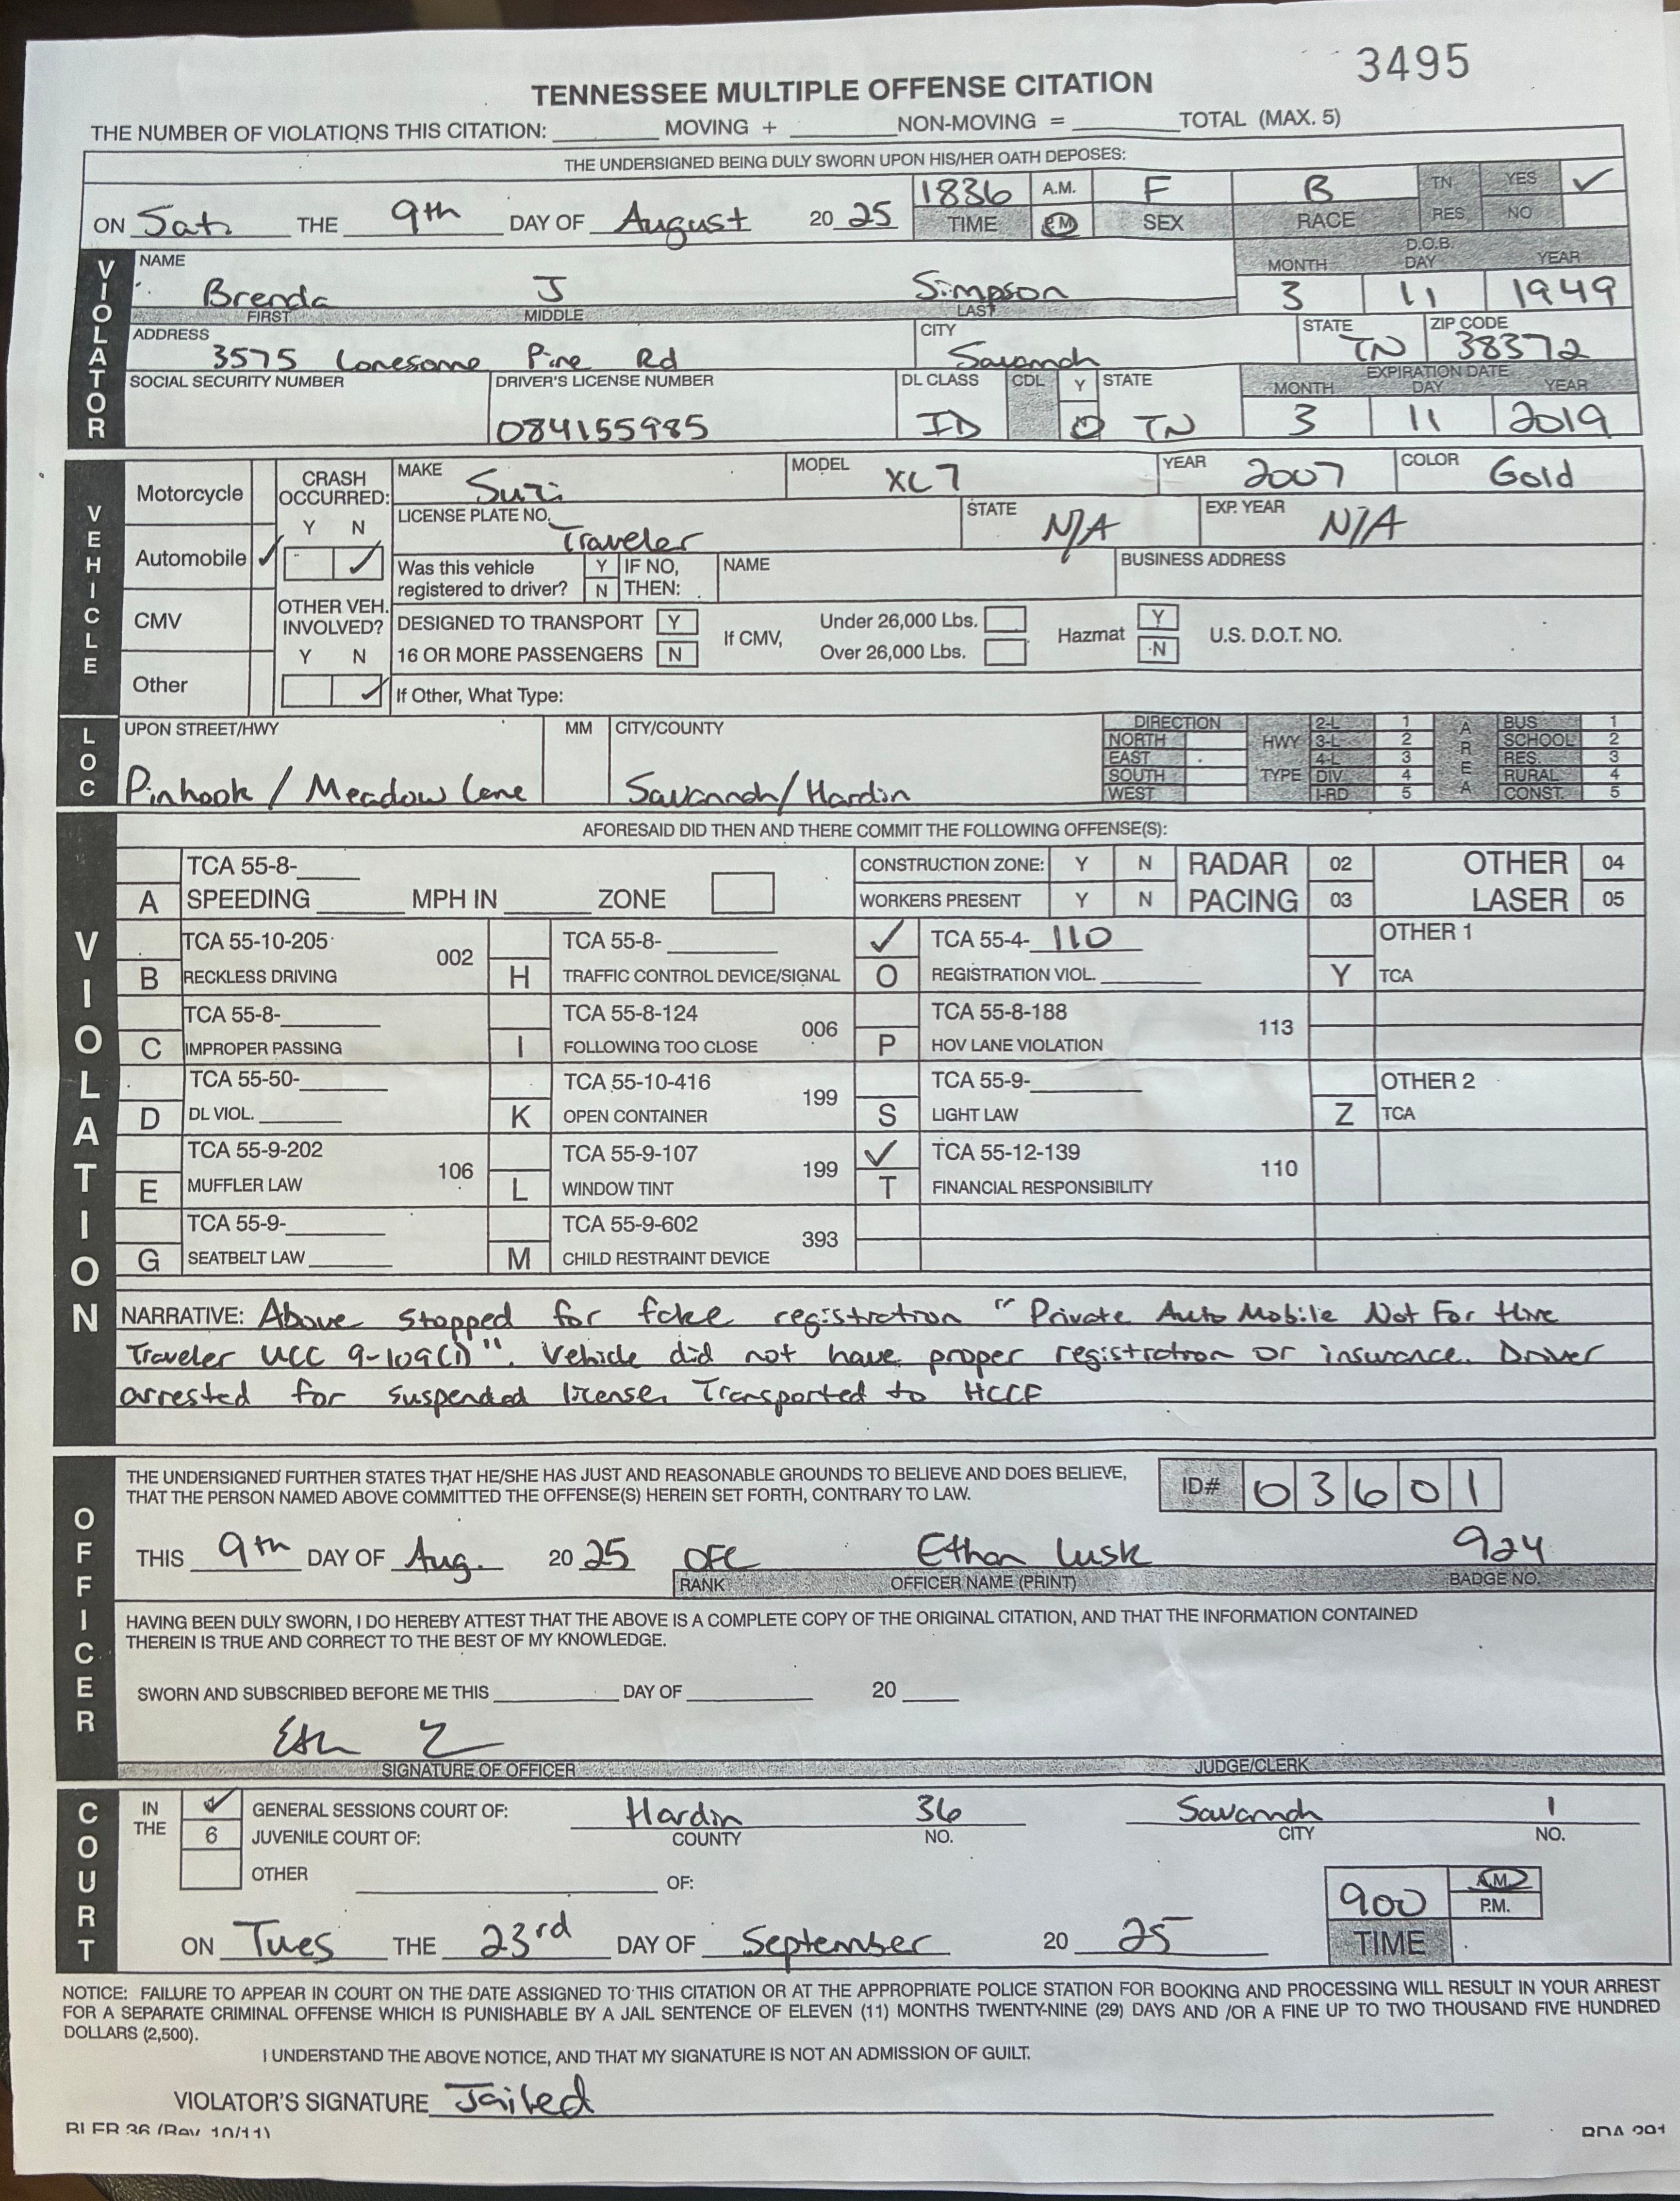 3495
TENNESSEE MULTIPLE OFFENSE CITATION
THE NUMBER OF VIOLATIONS THIS CITATION: MOVING + NON-MOVING = TOTAL (MAX. 5)
THE UNDERSIGNED BEING DULY SWORN UPON HIS/HER OATH DEPOSES:
ON Sat. THE 9th DAY OF August 20 25 1836 TIME A.M. PM F SEX B RACE TN RES YES NO
VIOLATOR
NAME D.O.B.
MONTH DAY YEAR
Brenda J Simpson 3 11 1949
FIRST MIDDLE LAST
ADDRESS CITY STATE ZIP CODE
3575 Lonesome Pine Rd Savannah TN 38372
SOCIAL SECURITY NUMBER DRIVER'S LICENSE NUMBER DL CLASS CDL Y STATE EXPIRATION DATE
MONTH DAY YEAR
084155985 ID TN 3 11 2019
VEHICLE
Motorcycle CRASH OCCURRED: MAKE Suzi MODEL XL7 YEAR 2007 COLOR Gold
Y N LICENSE PLATE NO. Traveler STATE N/A EXP. YEAR N/A
Automobile Was this vehicle registered to driver? Y N IF NO, THEN: NAME BUSINESS ADDRESS
CMV OTHER VEH. INVOLVED? DESIGNED TO TRANSPORT Y If CMV, Under 26,000 Lbs. Hazmat Y U.S. D.O.T. NO.
Y N 16 OR MORE PASSENGERS N Over 26,000 Lbs. N
Other If Other, What Type:
LOC
UPON STREET/HWY MM CITY/COUNTY DIRECTION 2-L 1 BUS 1
NORTH HWY 3-L 2 AREA SCHOOL 2
EAST 4-L 3 RES. 3
SOUTH TYPE DIV. 4 RURAL 4
Pinhook / Meadow Lane Savannah/Hardin WEST I-RD 5 CONST. 5
VIOLATION
AFORESAID DID THEN AND THERE COMMIT THE FOLLOWING OFFENSE(S):
TCA 55-8- CONSTRUCTION ZONE: Y N RADAR 02 OTHER 04
A SPEEDING MPH IN ZONE WORKERS PRESENT Y N PACING 03 LASER 05
TCA 55-10-205 002 TCA 55-8- TCA 55-4-110 OTHER 1
B RECKLESS DRIVING H TRAFFIC CONTROL DEVICE/SIGNAL O REGISTRATION VIOL. Y TCA
TCA 55-8- TCA 55-8-124 006 TCA 55-8-188 113
C IMPROPER PASSING I FOLLOWING TOO CLOSE P HOV LANE VIOLATION
TCA 55-50- TCA 55-10-416 199 TCA 55-9- OTHER 2
D DL VIOL. K OPEN CONTAINER S LIGHT LAW Z TCA
TCA 55-9-202 106 TCA 55-9-107 199 TCA 55-12-139 110
E MUFFLER LAW L WINDOW TINT T FINANCIAL RESPONSIBILITY
TCA 55-9- TCA 55-9-602 393
G SEATBELT LAW M CHILD RESTRAINT DEVICE
NARRATIVE: Above stopped for fake registration "Private Auto Mobile Not For Hire
Traveler UCC 9-109(1)". Vehicle did not have proper registration or insurance. Driver
arrested for suspended license. Transported to HCCF
OFFICER
THE UNDERSIGNED FURTHER STATES THAT HE/SHE HAS JUST AND REASONABLE GROUNDS TO BELIEVE AND DOES BELIEVE,
THAT THE PERSON NAMED ABOVE COMMITTED THE OFFENSE(S) HEREIN SET FORTH, CONTRARY TO LAW.
ID# 03601
THIS 9th DAY OF Aug. 20 25 OFC Ethan Lusk 924
RANK OFFICER NAME (PRINT) BADGE NO.
HAVING BEEN DULY SWORN, I DO HEREBY ATTEST THAT THE ABOVE IS A COMPLETE COPY OF THE ORIGINAL CITATION, AND THAT THE INFORMATION CONTAINED
THEREIN IS TRUE AND CORRECT TO THE BEST OF MY KNOWLEDGE.
SWORN AND SUBSCRIBED BEFORE ME THIS DAY OF 20
SIGNATURE OF OFFICER JUDGE/CLERK
COURT
IN THE GENERAL SESSIONS COURT OF: Hardin 36 Savannah 1
6 JUVENILE COURT OF: COUNTY NO. CITY NO.
OTHER OF:
900 A.M. P.M.
ON Tues THE 23rd DAY OF September 20 25 TIME
NOTICE: FAILURE TO APPEAR IN COURT ON THE DATE ASSIGNED TO THIS CITATION OR AT THE APPROPRIATE POLICE STATION FOR BOOKING AND PROCESSING WILL RESULT IN YOUR ARREST
FOR A SEPARATE CRIMINAL OFFENSE WHICH IS PUNISHABLE BY A JAIL SENTENCE OF ELEVEN (11) MONTHS TWENTY-NINE (29) DAYS AND /OR A FINE UP TO TWO THOUSAND FIVE HUNDRED
DOLLARS (2,500).
I UNDERSTAND THE ABOVE NOTICE, AND THAT MY SIGNATURE IS NOT AN ADMISSION OF GUILT.
VIOLATOR'S SIGNATURE Jailed
(Rev. 10/11)